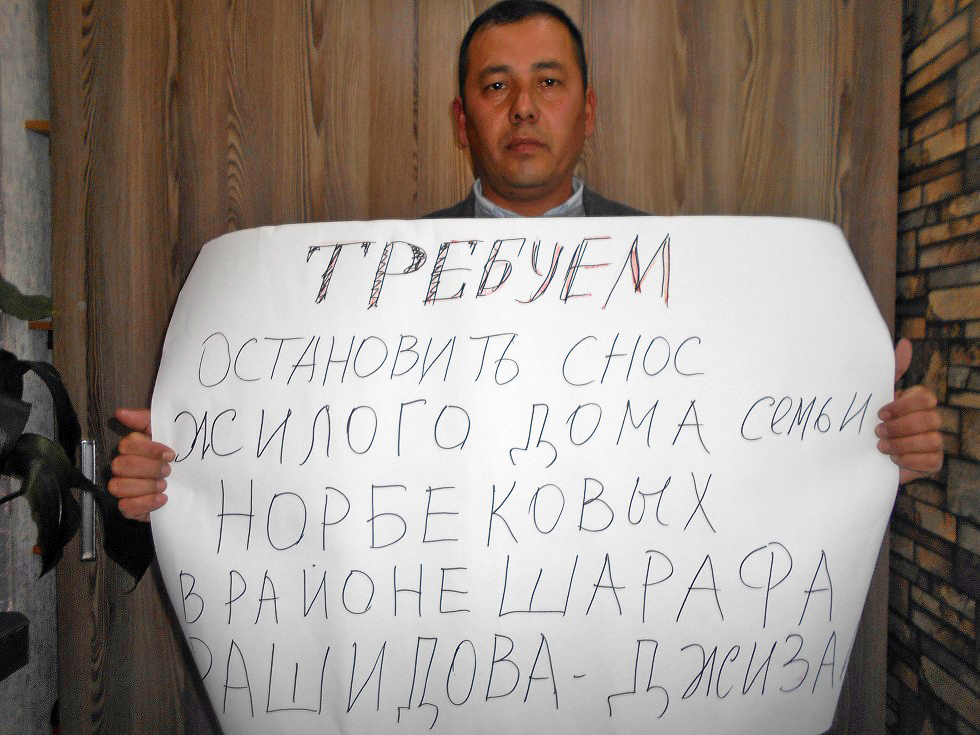 ТРЕБУЕМ
ОСТАНОВИТЬ СНОС
ЖИЛОГО ДОМА СЕМЬИ
НОРБЕКОВЫХ
В РАЙОНЕ ШАРАФА
РАШИДОВА - ДЖИЗА